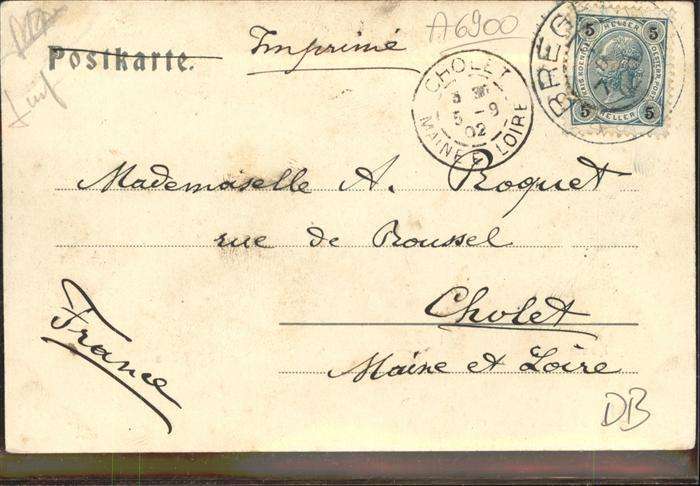 A6900
Postkarte.
Imprimé
CHOLET
3 5-9
02
MAINE ET LOIRE
BREG
5 HELLER 5
5 HELLER 5
Mademoiselle A. Roquet
rue de Roussel
Cholet
Maine et Loire
France
DB